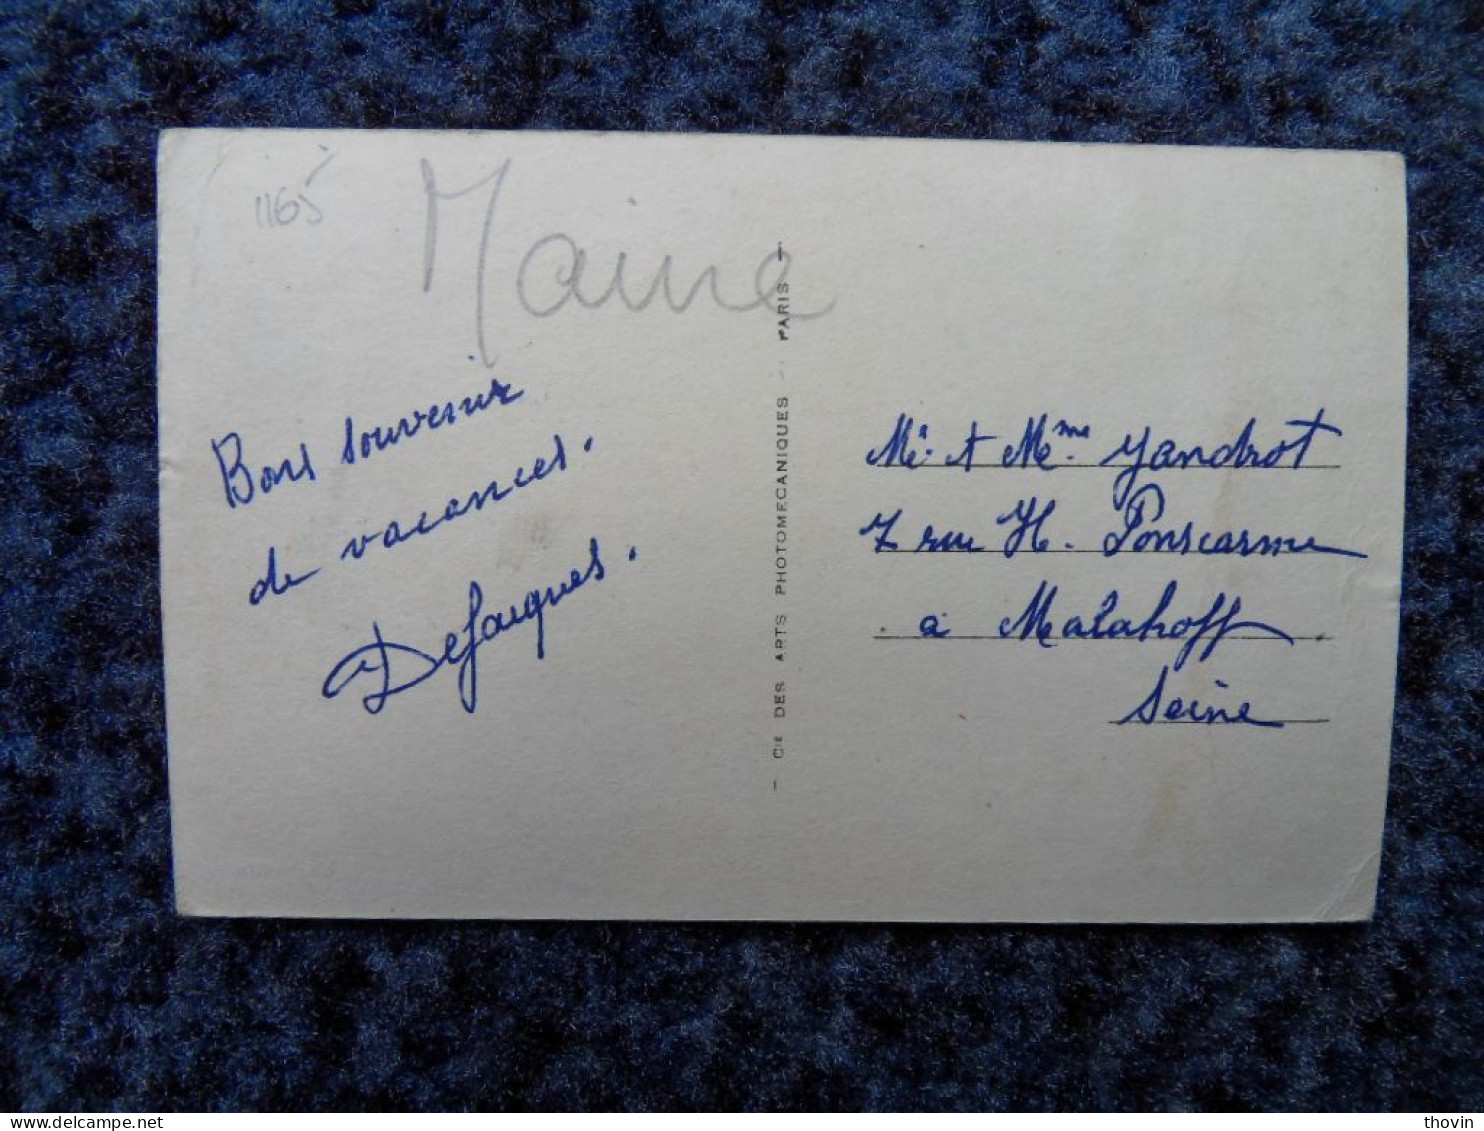 1165
Maine
Bons souvenir
de vacances.
DeJacques.
- CIE DES ARTS PHOTOMECANIQUES - PARIS -
Mr. et Mme. Yandrot
7 rue H. Ponscarme
à Malahoff
Seine
thovin